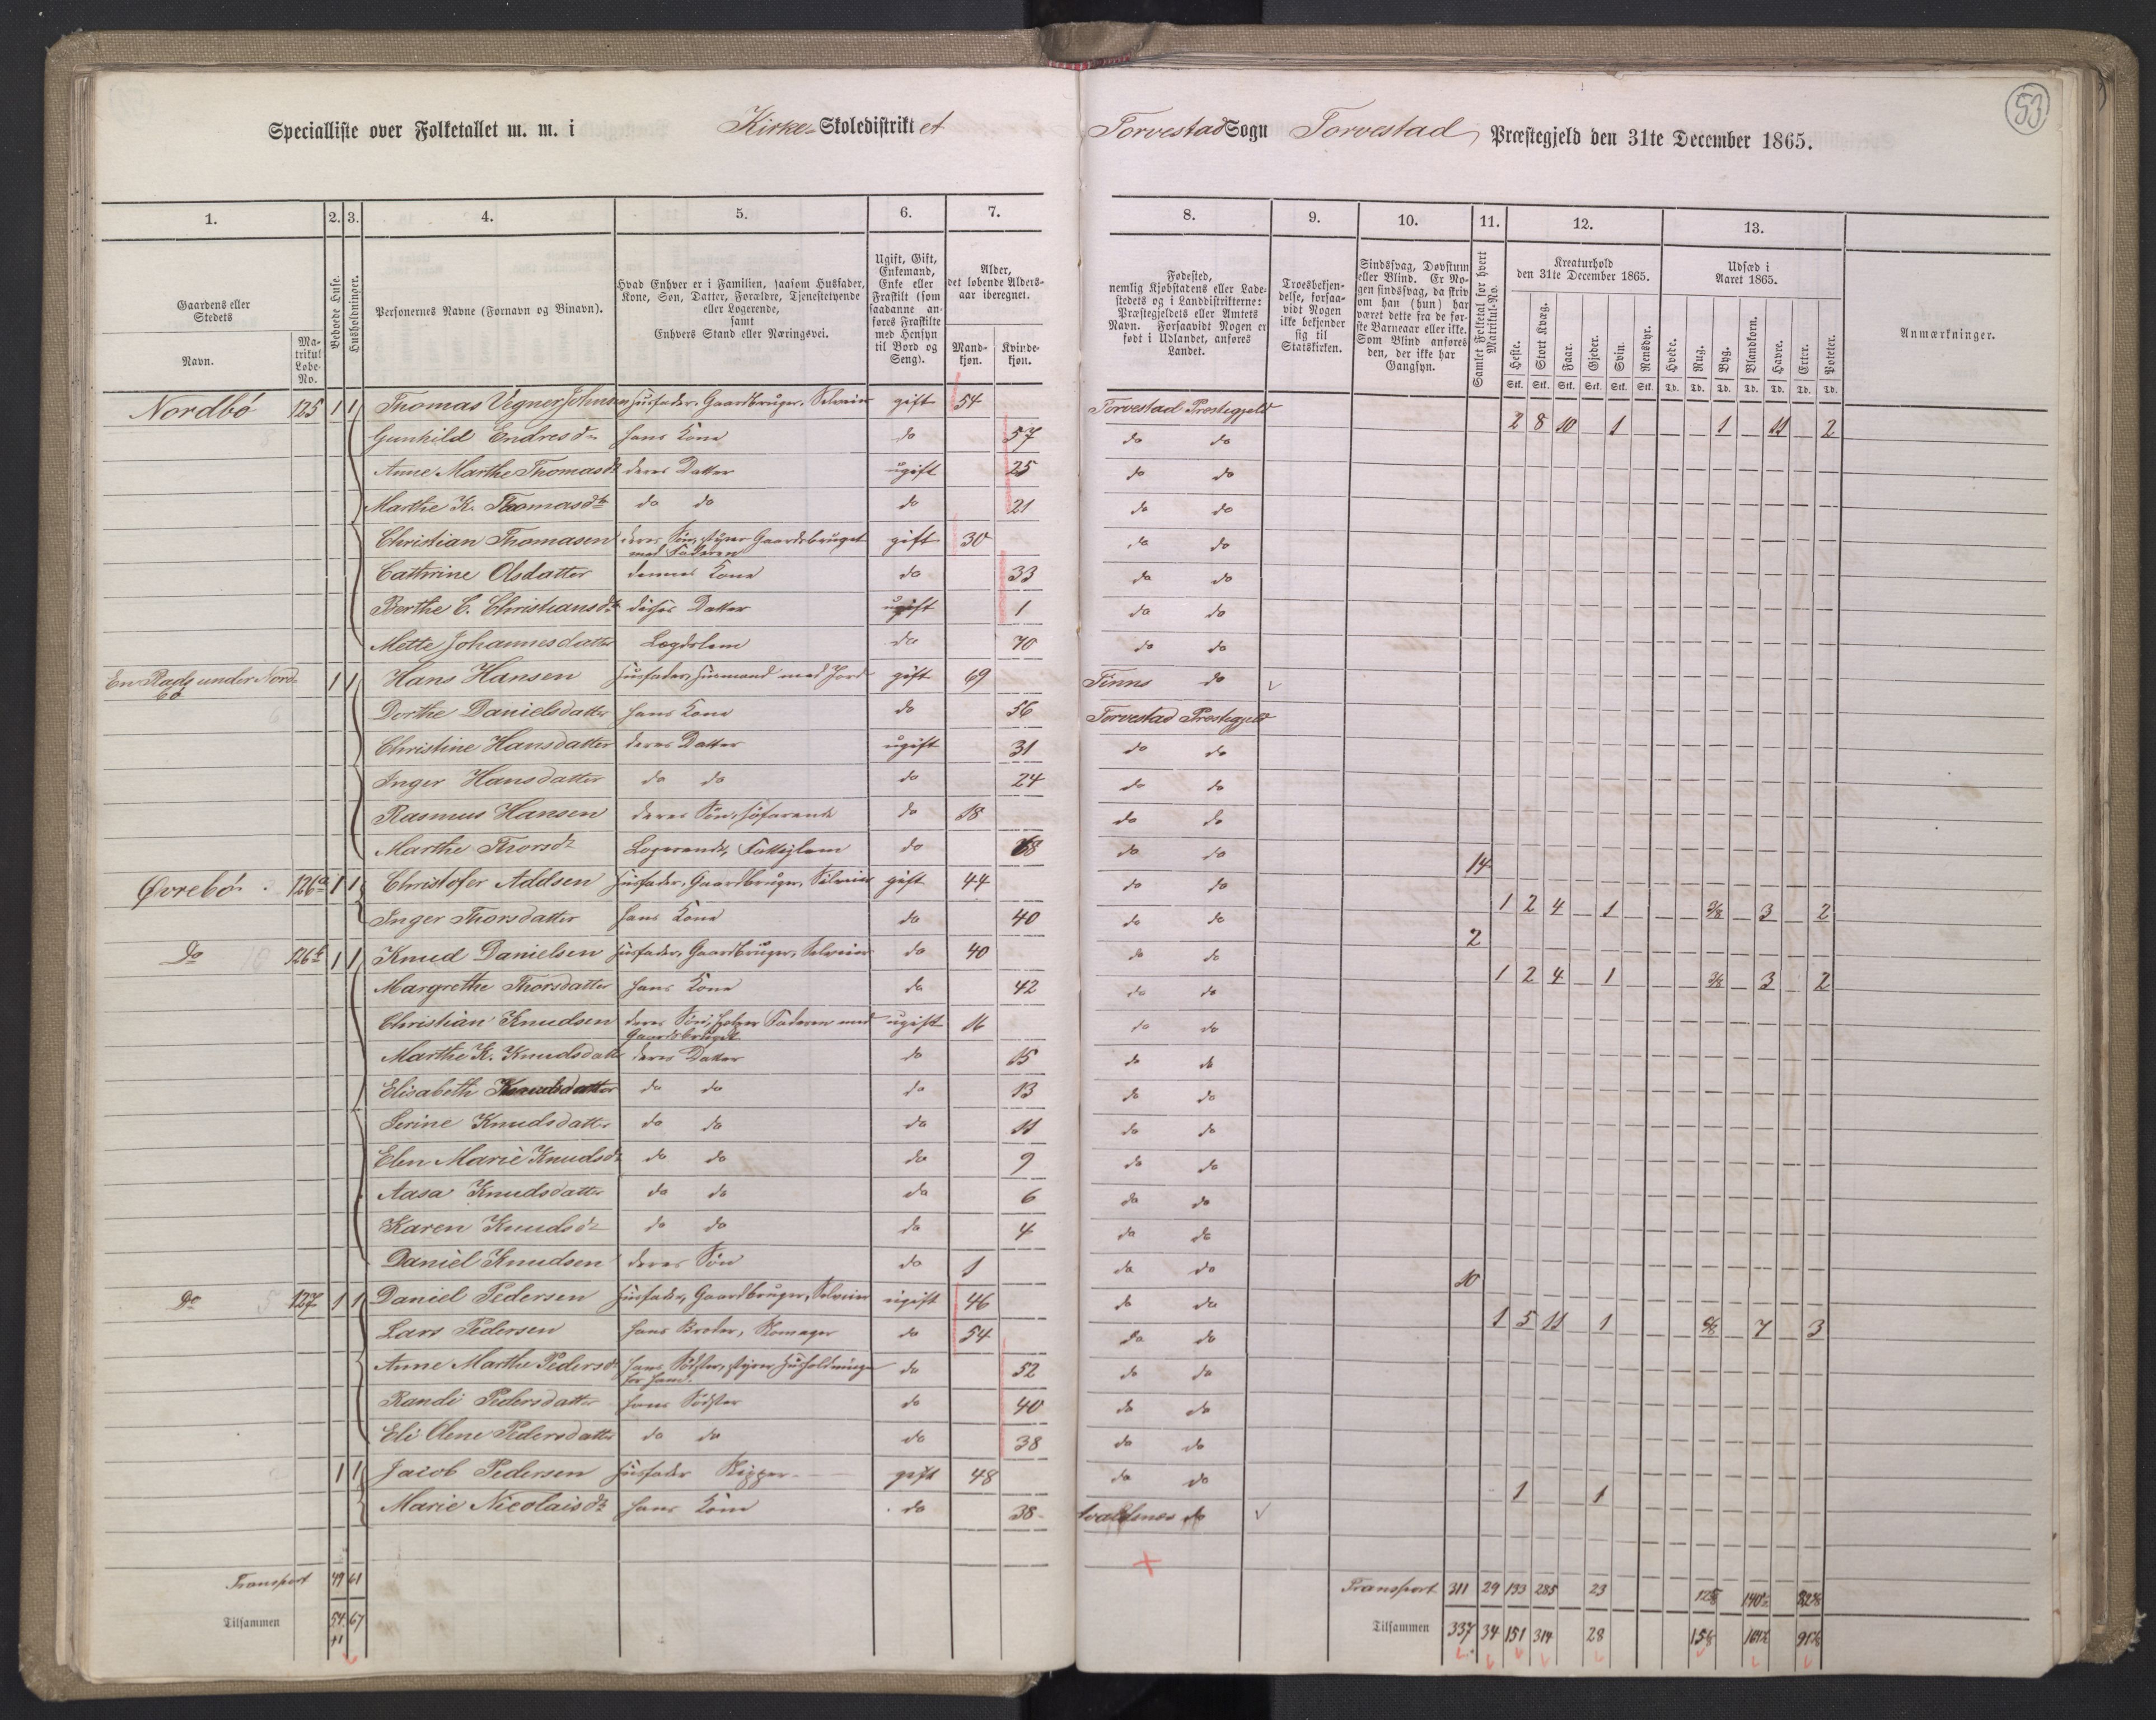 53
Specialliste over Folketallet m. m. i Kirke- Skoledistriktet Torvestad Sogn Torvestad Præstegjeld den 31te December 1865.
1. 2. 3. 4. 5. 6. 7. 8. 9. 10. 11. 12. 13.
Gaardens eller Stedets
Navn.
Matrikul Løbe-No.
Beboede Huse.
Husholdninger.
Personernes Navne (Fornavn og Binavn).
Hvad Enhver er i Familien, saasom Husfader, Kone, Søn, Datter, Forældre, Tjenestetyende eller Logerende,
samt
Enhvers Stand eller Næringsvei.
Ugift, Gift, Enkemand, Enke eller Fraskilt (som saadanne anføres Fraskilte med Hensyn til Bord og Seng).
Alder, det løbende Alders-aar iberegnet.
Mand-kjøn.
Kvinde-kjøn.
Fødested, nemlig Kjøbstadens eller Ladestedets og i Landdistrikterne: Præstegjeldets eller Amtets Navn. Forsaavidt Nogen er født i Udlandet, anføres Landet.
Troesbekjendelse, forsaavidt Nogen ikke bekjender sig til Statskirken.
Sindssvag, Døvstum eller Blind. Er Nogen sindssvag, da skriv om han (hun) har været dette fra de første Barneaar eller ikke. Som Blind anføres den, der ikke har Gangsyn.
Samlet Folketal for hvert Matrikul-No.
Kreaturhold den 31te December 1865.
Heste. Stort Kvæg. Faar. Gjeder. Svin. Rensdyr.
Stk. Stk. Stk. Stk. Stk. Stk.
Udsæd i Aaret 1865.
Hvede. Rug. Byg. Blandkorn. Havre. Erter. Poteter.
Td. Td. Td. Td. Td. Td. Td.
Anmærkninger.
Nordbö 125 1 1 Thomas Vegner Johnsen Husfader, Gaardbruger, Selveier gift 54 Torvestad Præstegjeld 2 8 10 1 1 11 2
Gunhild Endresd. hans Kone do 57 do do
Anne Marthe Thomasdt deres Datter ugift 25 do do
Marthe K. Thomasdt do do do 21 do do
Christian Thomasen deres Søn, styrer Gaardsbruget med Faderen gift 30 do do
Cathrine Olsdatter dennes Kone do 33 do do
Berthe C. Christiansdt disses Datter ugift 1 do do
Mette Johannesdatter Lægdslem do 70 do do
En Plads under Nordbö 1 1 Hans Hansen Husfader, Husmand med Jord gift 69 Tinns do
Dorthe Danielsdatter hans Kone do 56 Torvestad Præstegjeld
Christine Hansdatter deres Datter ugift 31 do do
Inger Hansdatter do do do 24 do do
Rasmus Hansen deres Søn, søfarende do 18 do do
Marthe Thorsdt Logerende, Fattiglem do 68 do do 14
Øvrebö 126a 1 1 Christofer Addsen Husfader, Gaardbruger, Selveier gift 44 do do 1 2 4 1 3/8 3 2
Inger Thorsdatter hans Kone do 40 do do 2
Do 126b 1 1 Knud Danielsen Husfader, Gaardbruger, Selveier do 40 do do 1 2 4 1 3/8 3 2
Margrethe Thorsdatter hans Kone do 42 do do
Christian Knudsen deres Søn, hjelper Faderen med Gaardsbruget ugift 16 do do
Marthe K. Knudsdatt deres Datter do 15 do do
Elisabeth Knudsdatter do do do 13 do do
Serine Knudsdatter do do do 11 do do
Elen Marie Knudsdt do do do 9 do do
Aasa Knudsdatter do do do 6 do do
Karen Knudsdt do do do 4 do do
Daniel Knudsen deres Søn do 1 do do 10
Do 127 1 1 Daniel Pedersen Husfader, Gaardbruger, Selveier ugift 46 do do 1 5 11 1 7 3
Lars Pedersen hans Broder, Skomager do 54 do do
Anne Marthe Pedersdt hans Södster, styrer Husholdningen for ham. do 52 do do
Randi Pedersdatter hans Södster do 40 do do
Eli Olene Pedersdatter do do do 38 do do
1 1 Jacob Pedersen Husfader Skipper gift 48 do do 1 1
Marie Nicolaisdt hans Kone do 38 Avaldsnes do
Transport 49 61 Transport 311 29 133 285 23
Tilsammen 54 67 Tilsammen 337 34 151 314 28